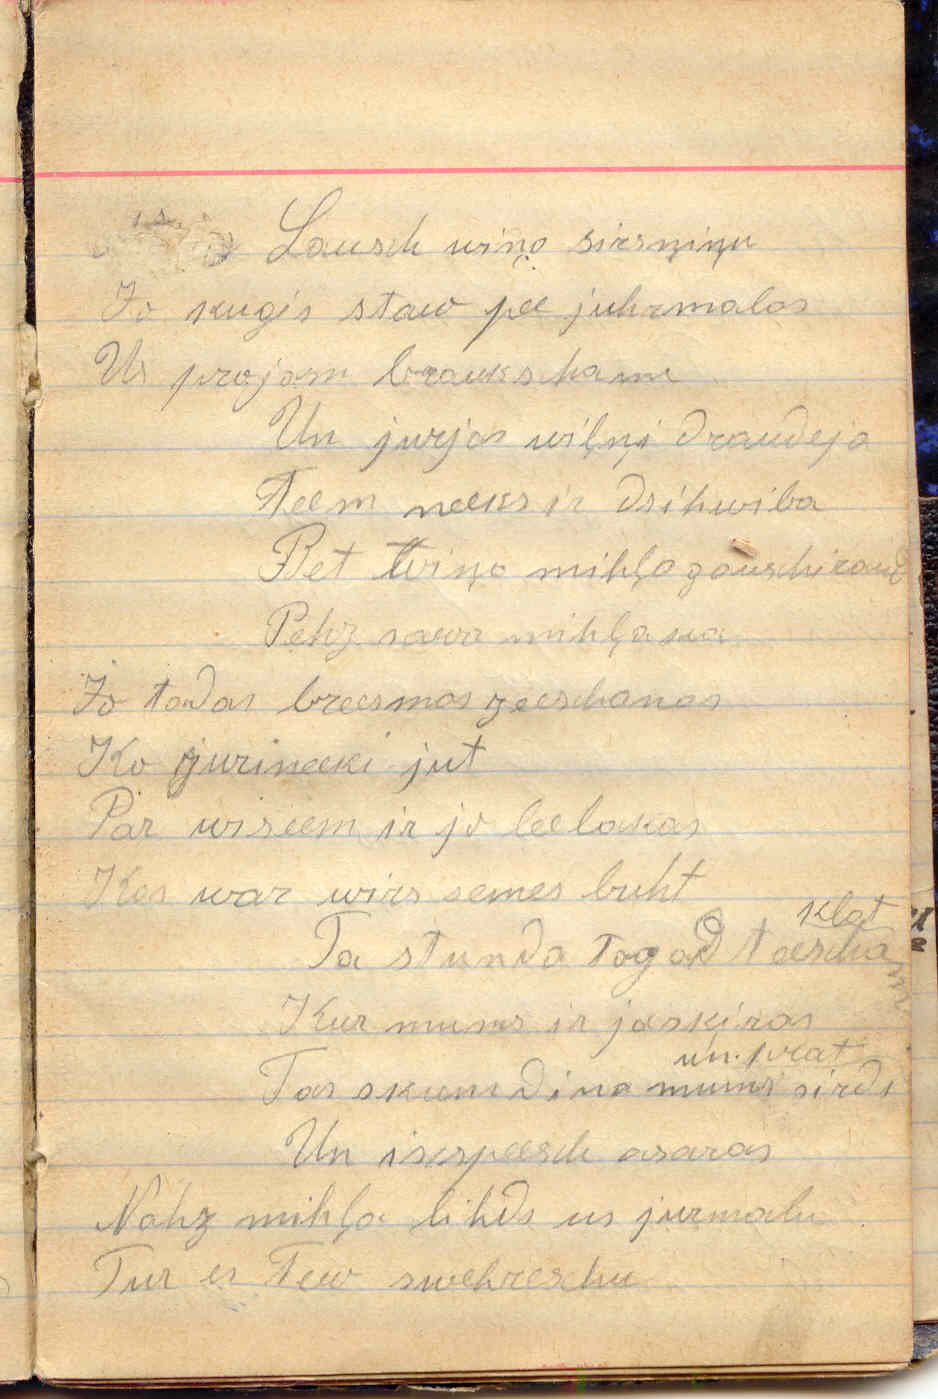 Lausch wiņa sirsņiņu
Jo kugis staw pee juhrmalas
Us projam braukschanu
Un jurjas wiļņi draudeja
Teem neeks ir dsihwiba
Bet wiņa mihļa gauschi raud
Pehz sawa mihļaka
Jo tadas breesmas zeeschanas
Ko jurineeki jut
Par wiseem ir jo leelakas
Kas war wirs semes buht
klat
Ta stunda tagad teescham
Kur mums ir jaskiras
un prat
Tas skumdina mums sirds
Un isspeesch asaras
Nahz mihļa lihds us jurmalu
Tur es Tew swehreschu